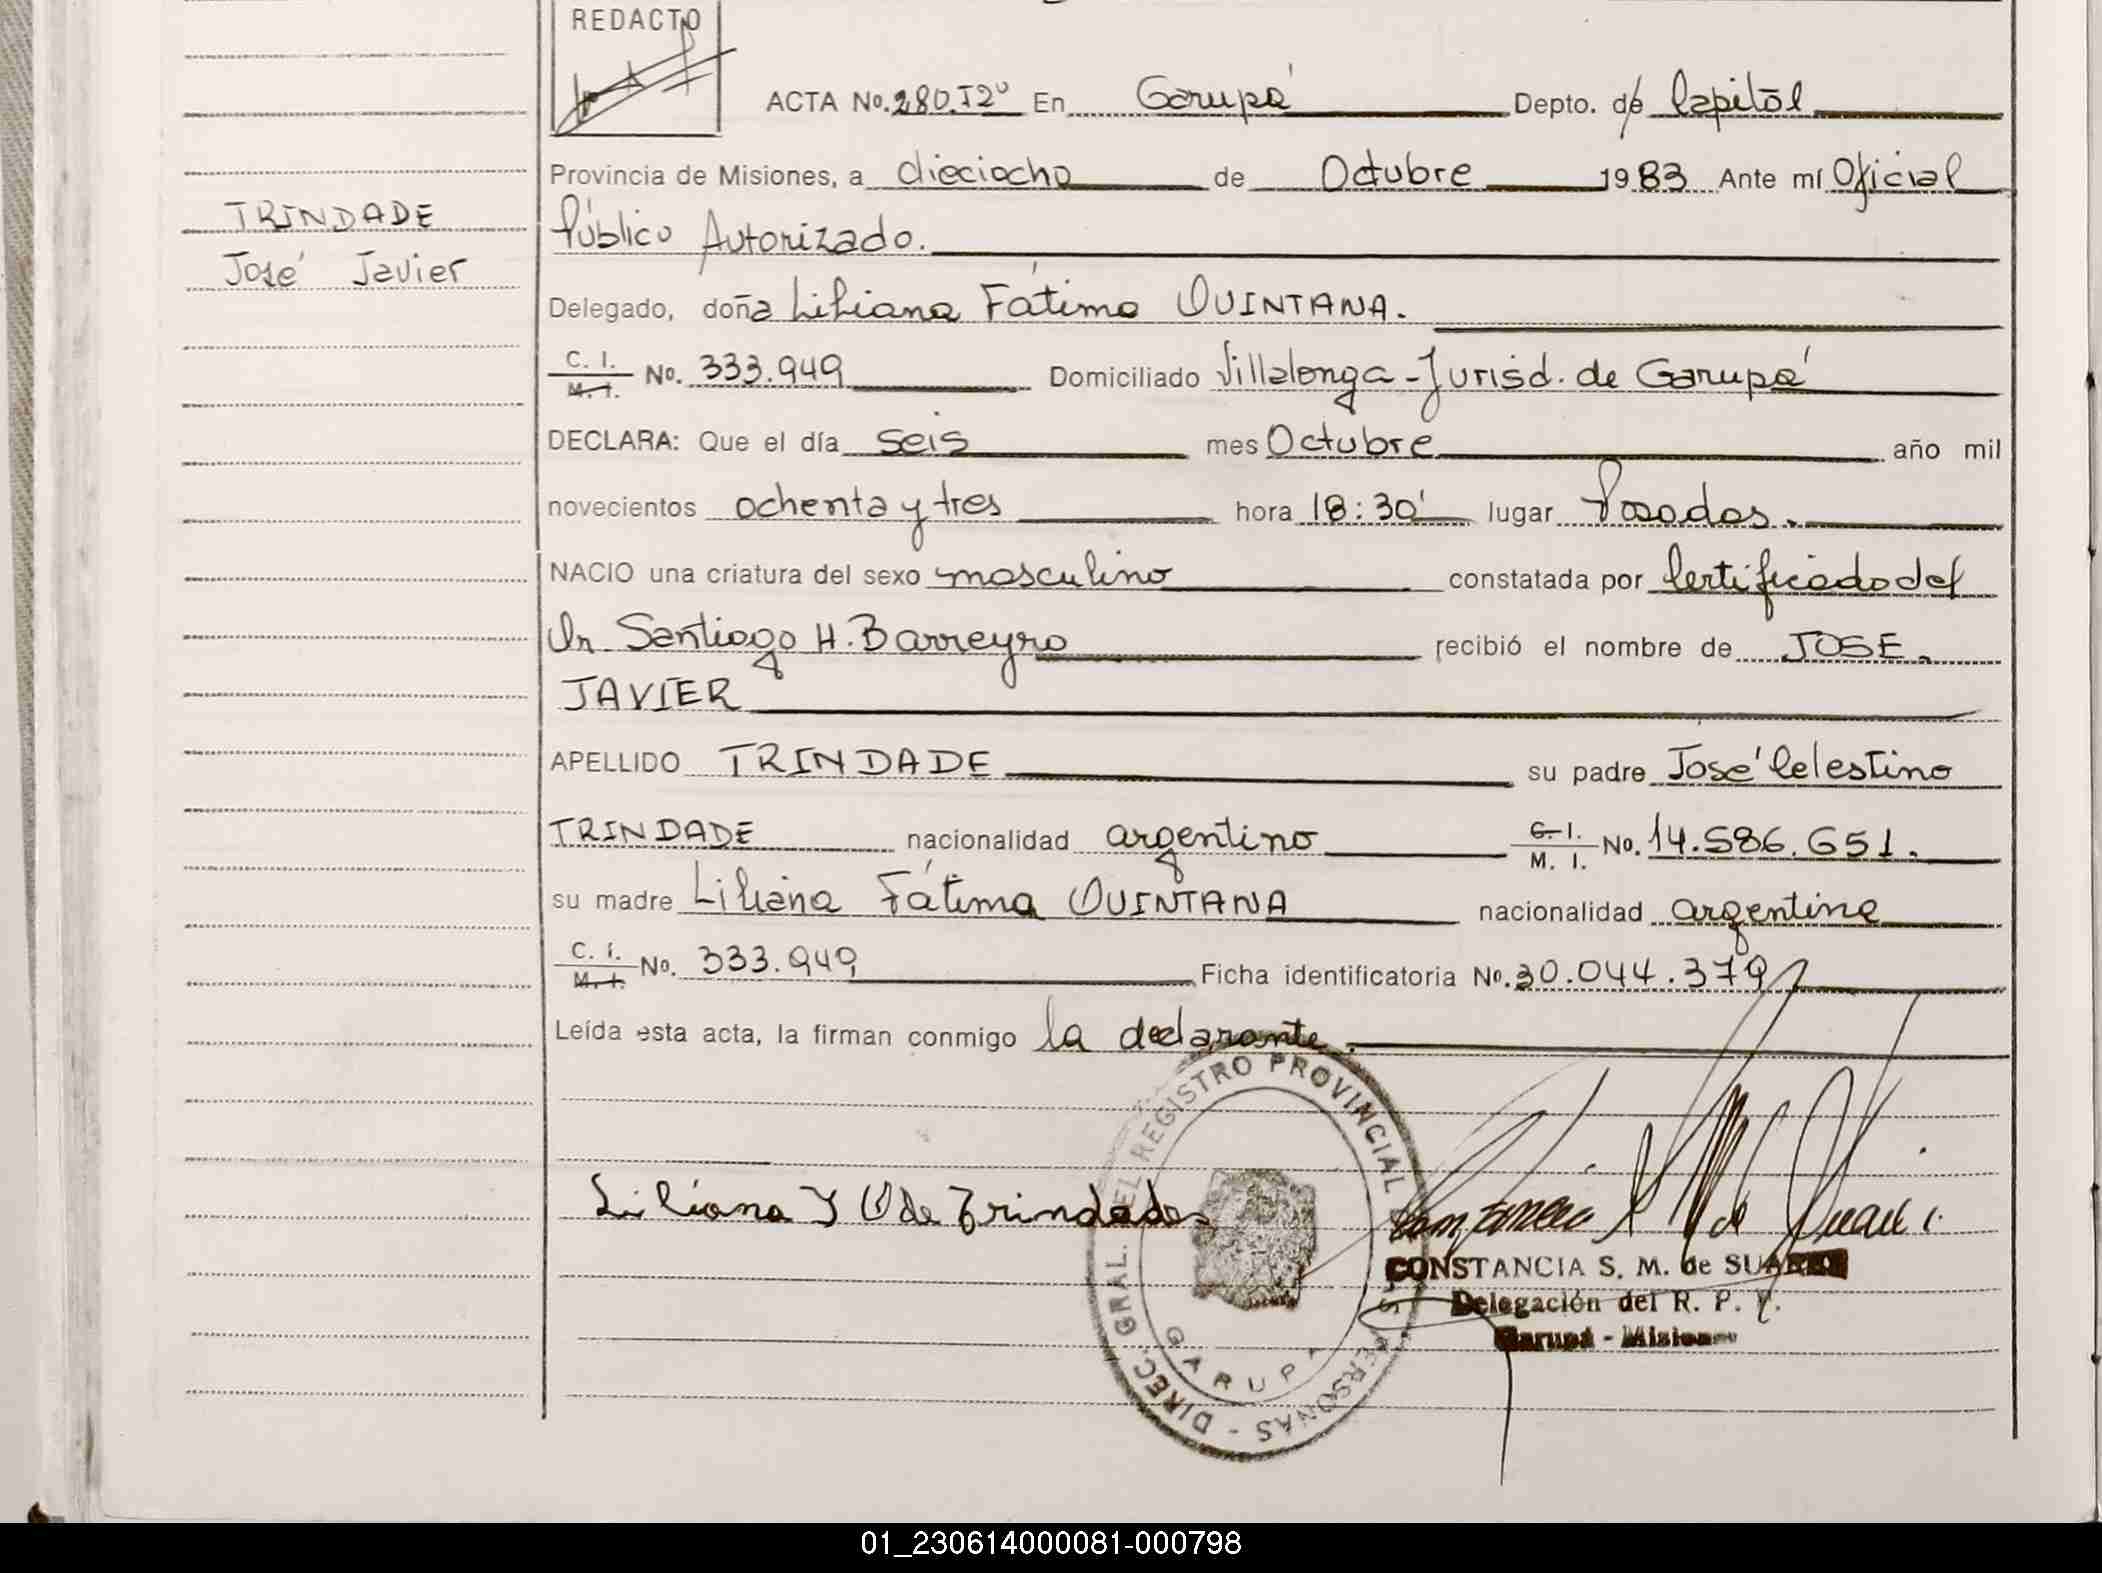 REDACTO
ACTA No. 280.T2º En Garupá Depto. de Capital
Provincia de Misiones, a dieciocho de Octubre 1983 Ante mí Oficial
Público Autorizado.
TRINDADE
José Javier
Delegado, doña Liliana Fátima QUINTANA.
C. I.
M. I. No. 333.949 Domiciliado Villalonga - Jurisd. de Garupá
DECLARA: Que el día seis mes Octubre año mil
novecientos ochenta y tres hora 18:30' lugar Posadas.
NACIO una criatura del sexo masculino constatada por Certificado del
Dr. Santiago H. Barreyro recibió el nombre de JOSE
JAVIER
APELLIDO TRINDADE su padre José Celestino
TRINDADE nacionalidad argentino C. I.
M. I. No. 14.586.651.
su madre Liliana Fátima QUINTANA nacionalidad argentina
C. I.
M. I. No. 333.949 Ficha identificatoria No. 30.044.379
Leída esta acta, la firman conmigo la declarante.
DIREC. GRAL. DEL REGISTRO PROVINCIAL PERSONAS -
GARUPA
Liliana F Q de Trindade
CONSTANCIA S. M. de SUAREZ
Delegación del R. P. P.
Garupá - Misiones
01_230614000081-000798